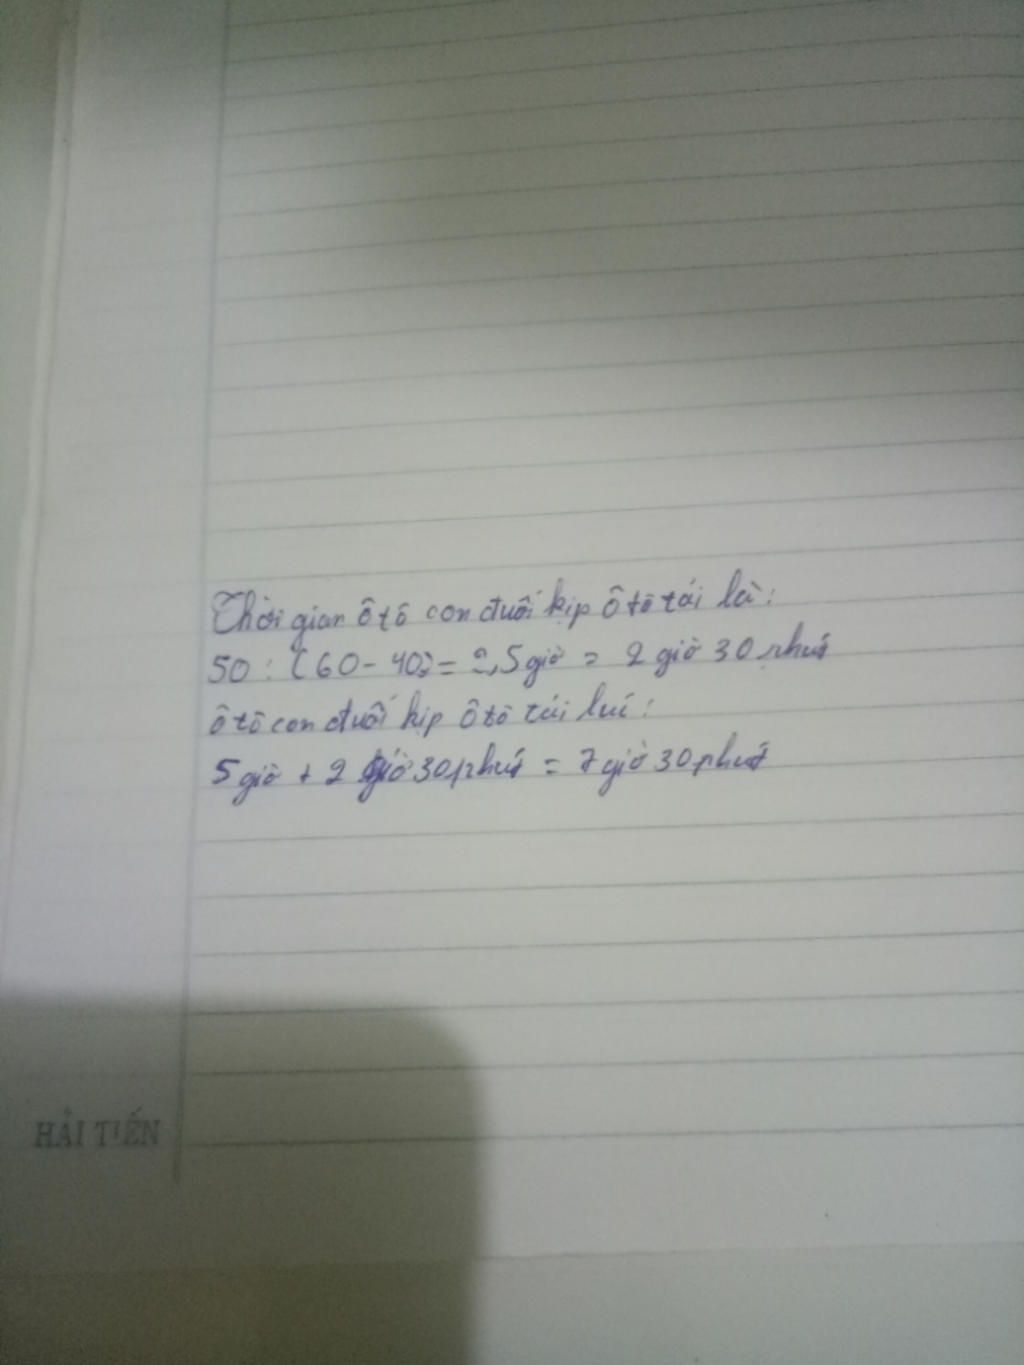 Thời gian ôtô con đuổi kịp ôtô tải là:
50 : (60 - 40) = 2,5 giờ = 2 giờ 30 phút
ôtô con đuổi kịp ôtô tải lúc:
5 giờ + 2 giờ 30 phút = 7 giờ 30 phút
HẢI TIẾN